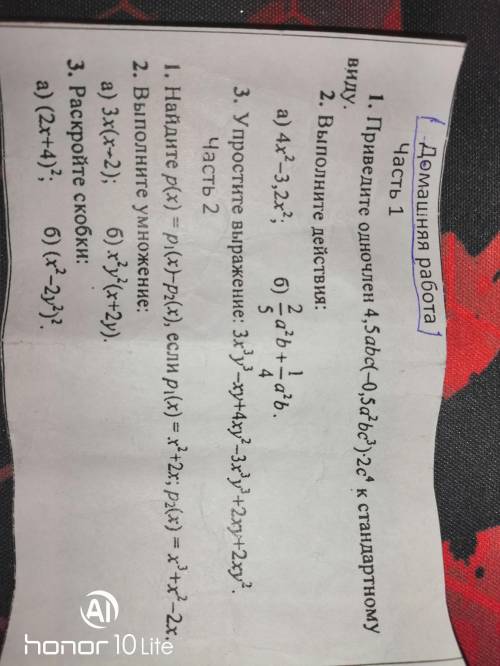 Домашняя работа
Часть 1
1. Приведите одночлен 4,5abc(−0,5a²bc³)·2c⁴ к стандартному
виду.
2. Выполните действия:
а) 4x²−3,2x²; б) 2/5 a²b + 1/4 a²b.
3. Упростите выражение: 3x³y³−xy+4xy²−3x³y³+2xy+2xy².
Часть 2
1. Найдите p(x) = p₁(x)−p₂(x), если p₁(x) = x²+2x; p₂(x) = x³+x²−2x.
2. Выполните умножение:
а) 3x(x−2); б) x²y²(x+2y).
3. Раскройте скобки:
а) (2x+4)²; б) (x²−2y²)².
AI
honor 10 Lite